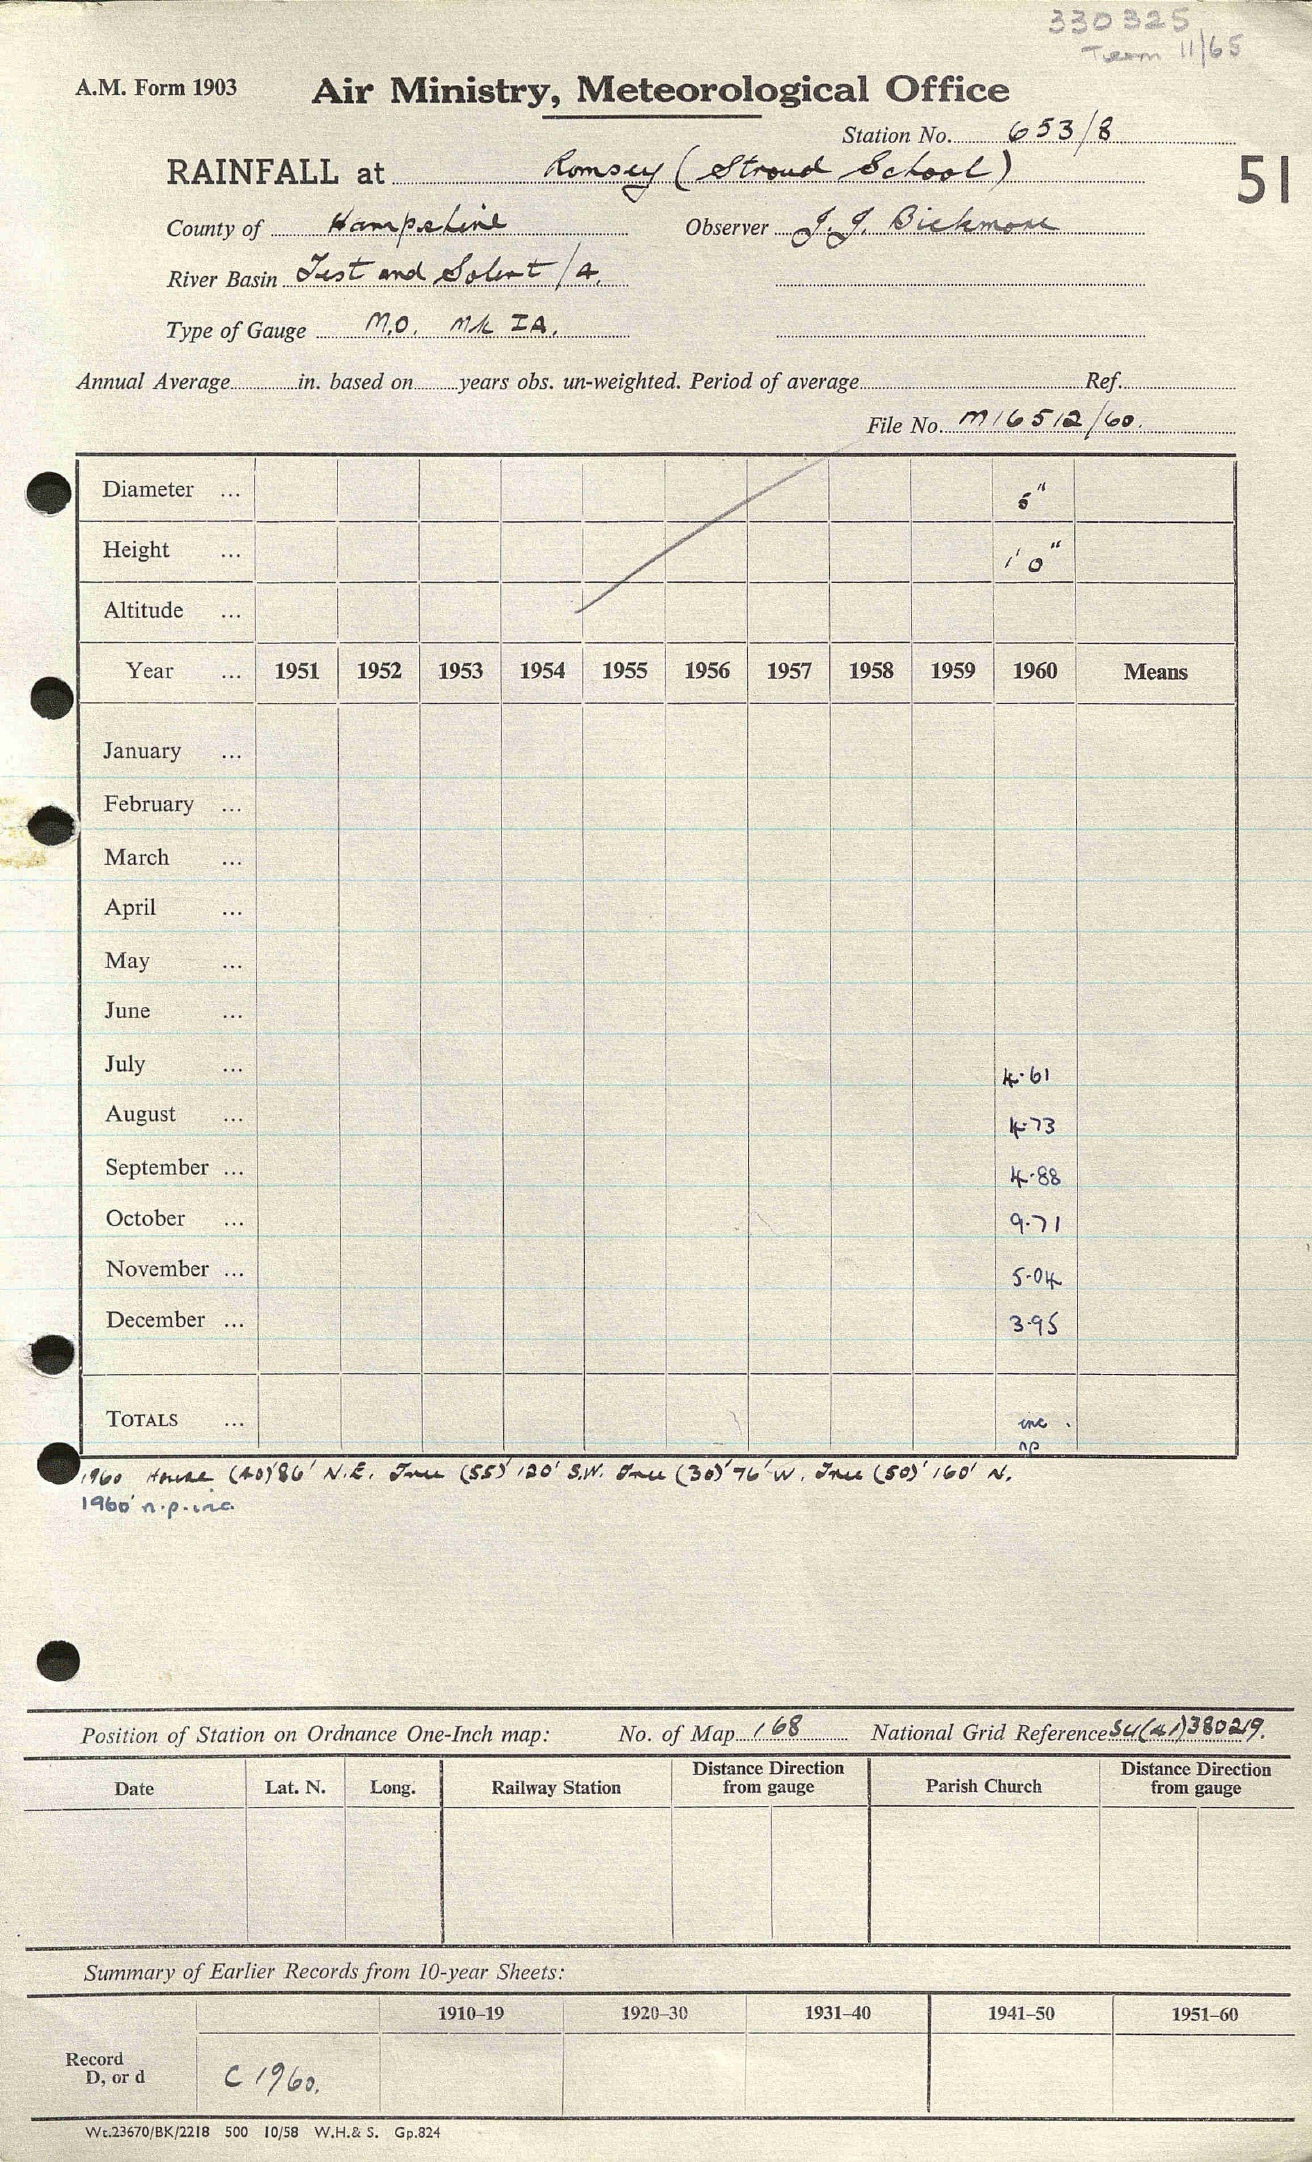 330325
Term 11/65
A.M. Form 1903 Air Ministry, Meteorological Office
Station No. 653/8
RAINFALL at Romsey (Stroud School)
51
County of Hampshire Observer J.J. Bickmore
River Basin Test and Solent/4.
Type of Gauge M.O. Mk IA.
Annual Average in. based on years obs. un-weighted. Period of average Ref.
File No. M16512/60.
Diameter ... 5"
Height ... 1' 0"
Altitude ...
Year ... 1951 1952 1953 1954 1955 1956 1957 1958 1959 1960 Means
January ...
February ...
March ...
April ...
May ...
June ...
July ... 4.61
August ... 4.73
September ... 4.88
October ... 9.71
November ... 5.04
December ... 3.95
TOTALS ... inc.
np
1960 House (40)'86' N.E. Tree (55)' 120' S.W. Tree (30)' 76' W. Tree (50)' 160' N.
1960 n.p. inc.
Position of Station on Ordnance One-Inch map: No. of Map 168 National Grid Reference SU(41)380219.
Date Lat. N. Long. Railway Station Distance Direction from gauge Parish Church Distance Direction from gauge
Summary of Earlier Records from 10-year Sheets:
1910–19 1920–30 1931–40 1941–50 1951–60
Record
D, or d
C 1960.
Wt.23670/BK/2218 500 10/58 W.H.& S. Gp.824